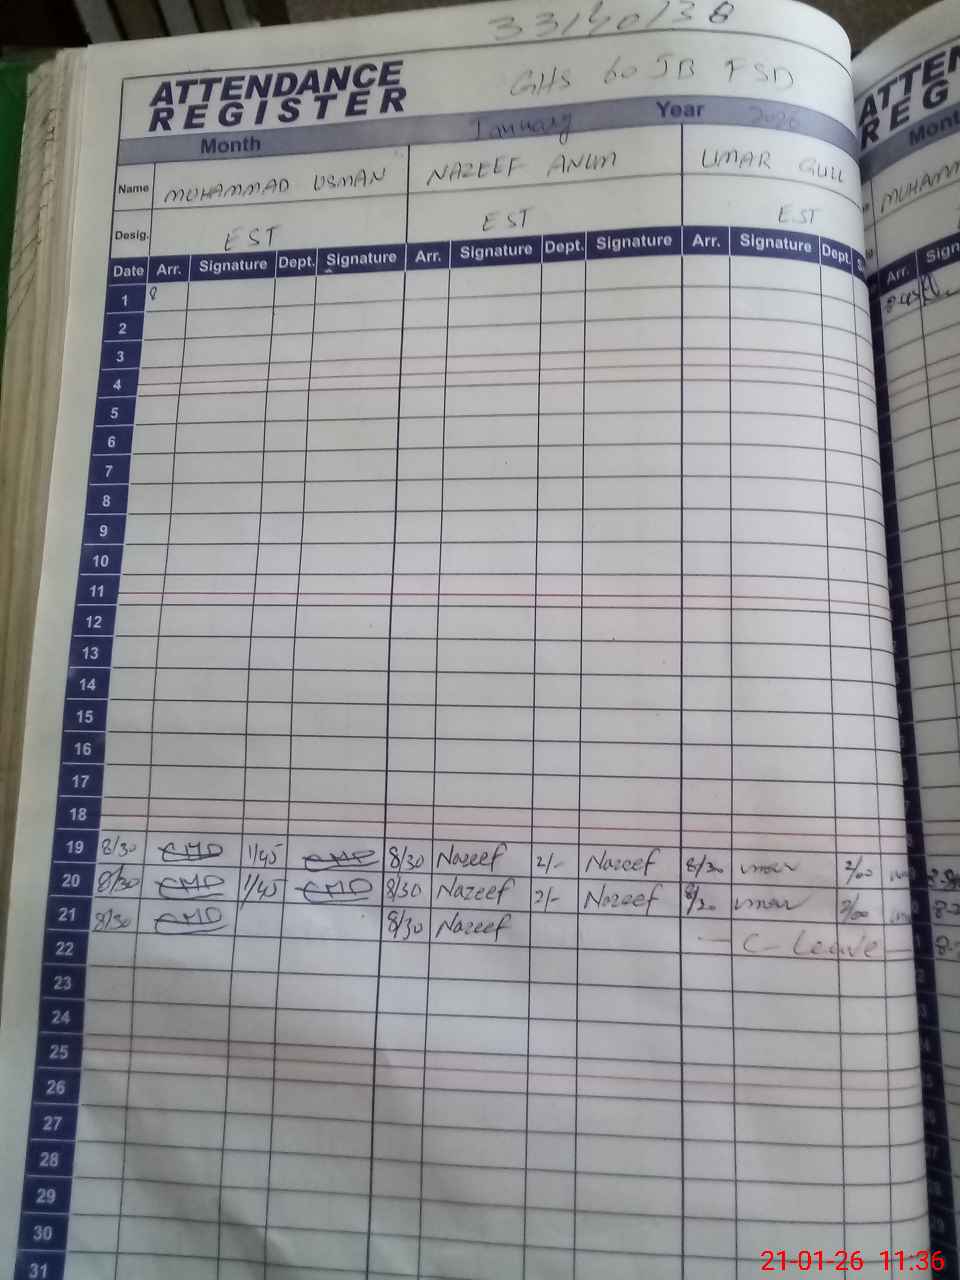 33140138
ATTENDANCE
REGISTER
GHS 60 JB FSD
Month January Year 2026
Name MUHAMMAD USMAN NAZEEF ANUM UMAR GULL
Desig. EST EST EST
Date Arr. Signature Dept. Signature Arr. Signature Dept. Signature Arr. Signature Dept.
1 8
2
3
4
5
6
7
8
9
10
11
12
13
14
15
16
17
18
19 8/30 1/45 8/30 Nazeef 2/- Nazeef 8/30 umar 2/00
20 8/30 1/45 8/30 Nazeef 2/- Nazeef 8/30 umar 2/00
21 8/30 8/30 Nazeef C- Leave
22
23
24
25
26
27
28
29
30
31
ATTEN
REG
Month
MUHAMM
Arr. Sign
21-01-26 11:36